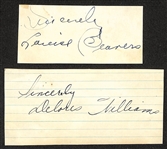 Sincerely
Louise Beavers
Sincerely
Delores Williams